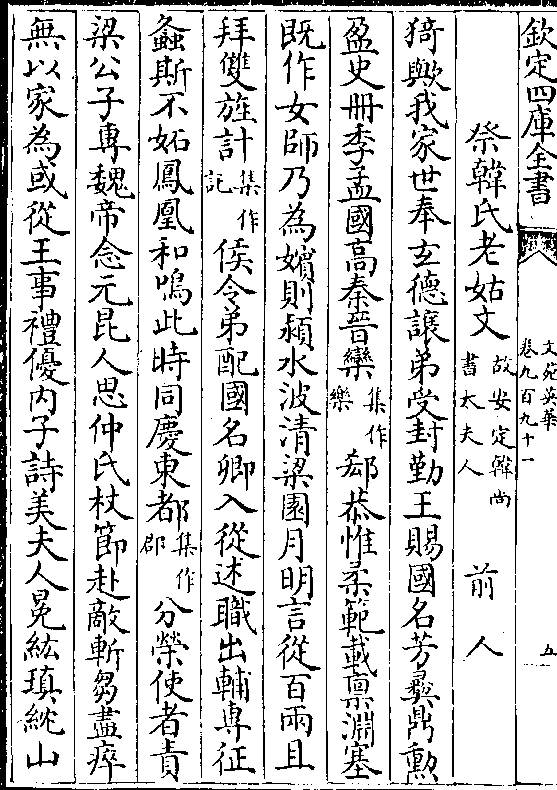 欽定四庫全書
文苑英華
卷九百九十一
五
祭韓氏老姑文
故安定韓尚
書太夫人
前人
猗歟我家世奉玄德讓弟受封勤王賜國名芳彜鼎勲
盈史冊季孟國高秦晉欒集作樂郄恭惟柔範載禀淵塞
既作女師乃為嬪則潁水波清梁園月明言從百兩且
拜雙旌計集作記侯令弟配國名卿入從述職出輔專征
螽斯不妬鳳凰和鳴此時同慶東都集作郡分榮使者責
梁公子專魏帝念元昆人思仲氏杖節赴敵斬芻盡瘁
無以家為或從王事禮優内子詩美夫人冕紘瑱紞山